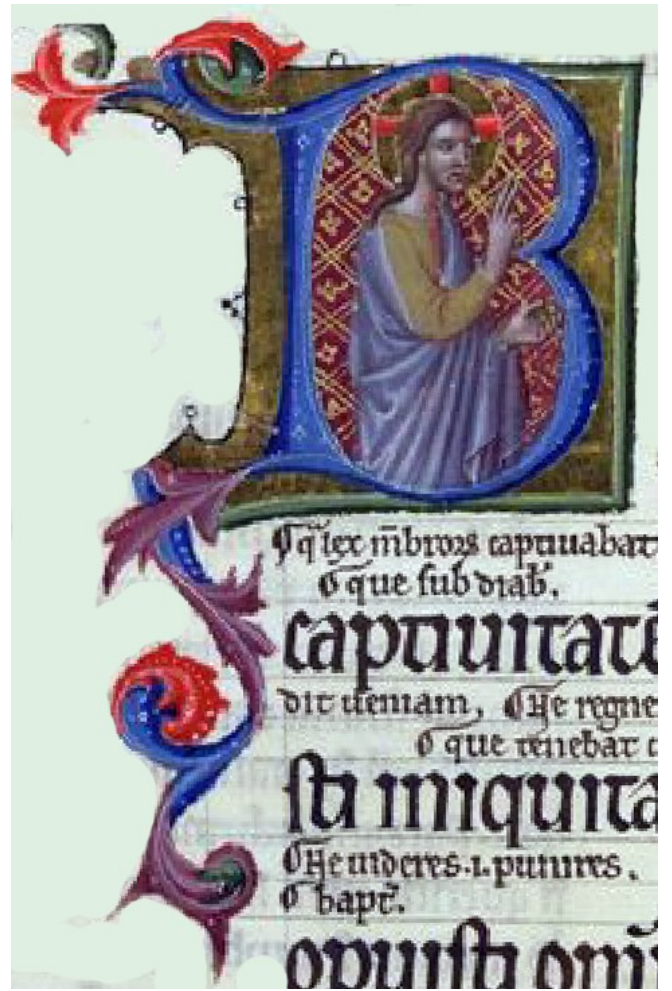 B
q̄ lex m̄broꝝ captiuabat
que sub diab̄.
captiuitatē
dit ueniam, ¶ Ne regne
que tenebat
sti iniquita
¶ Ne uideres .i. punires.
bapt̄.
opuisti